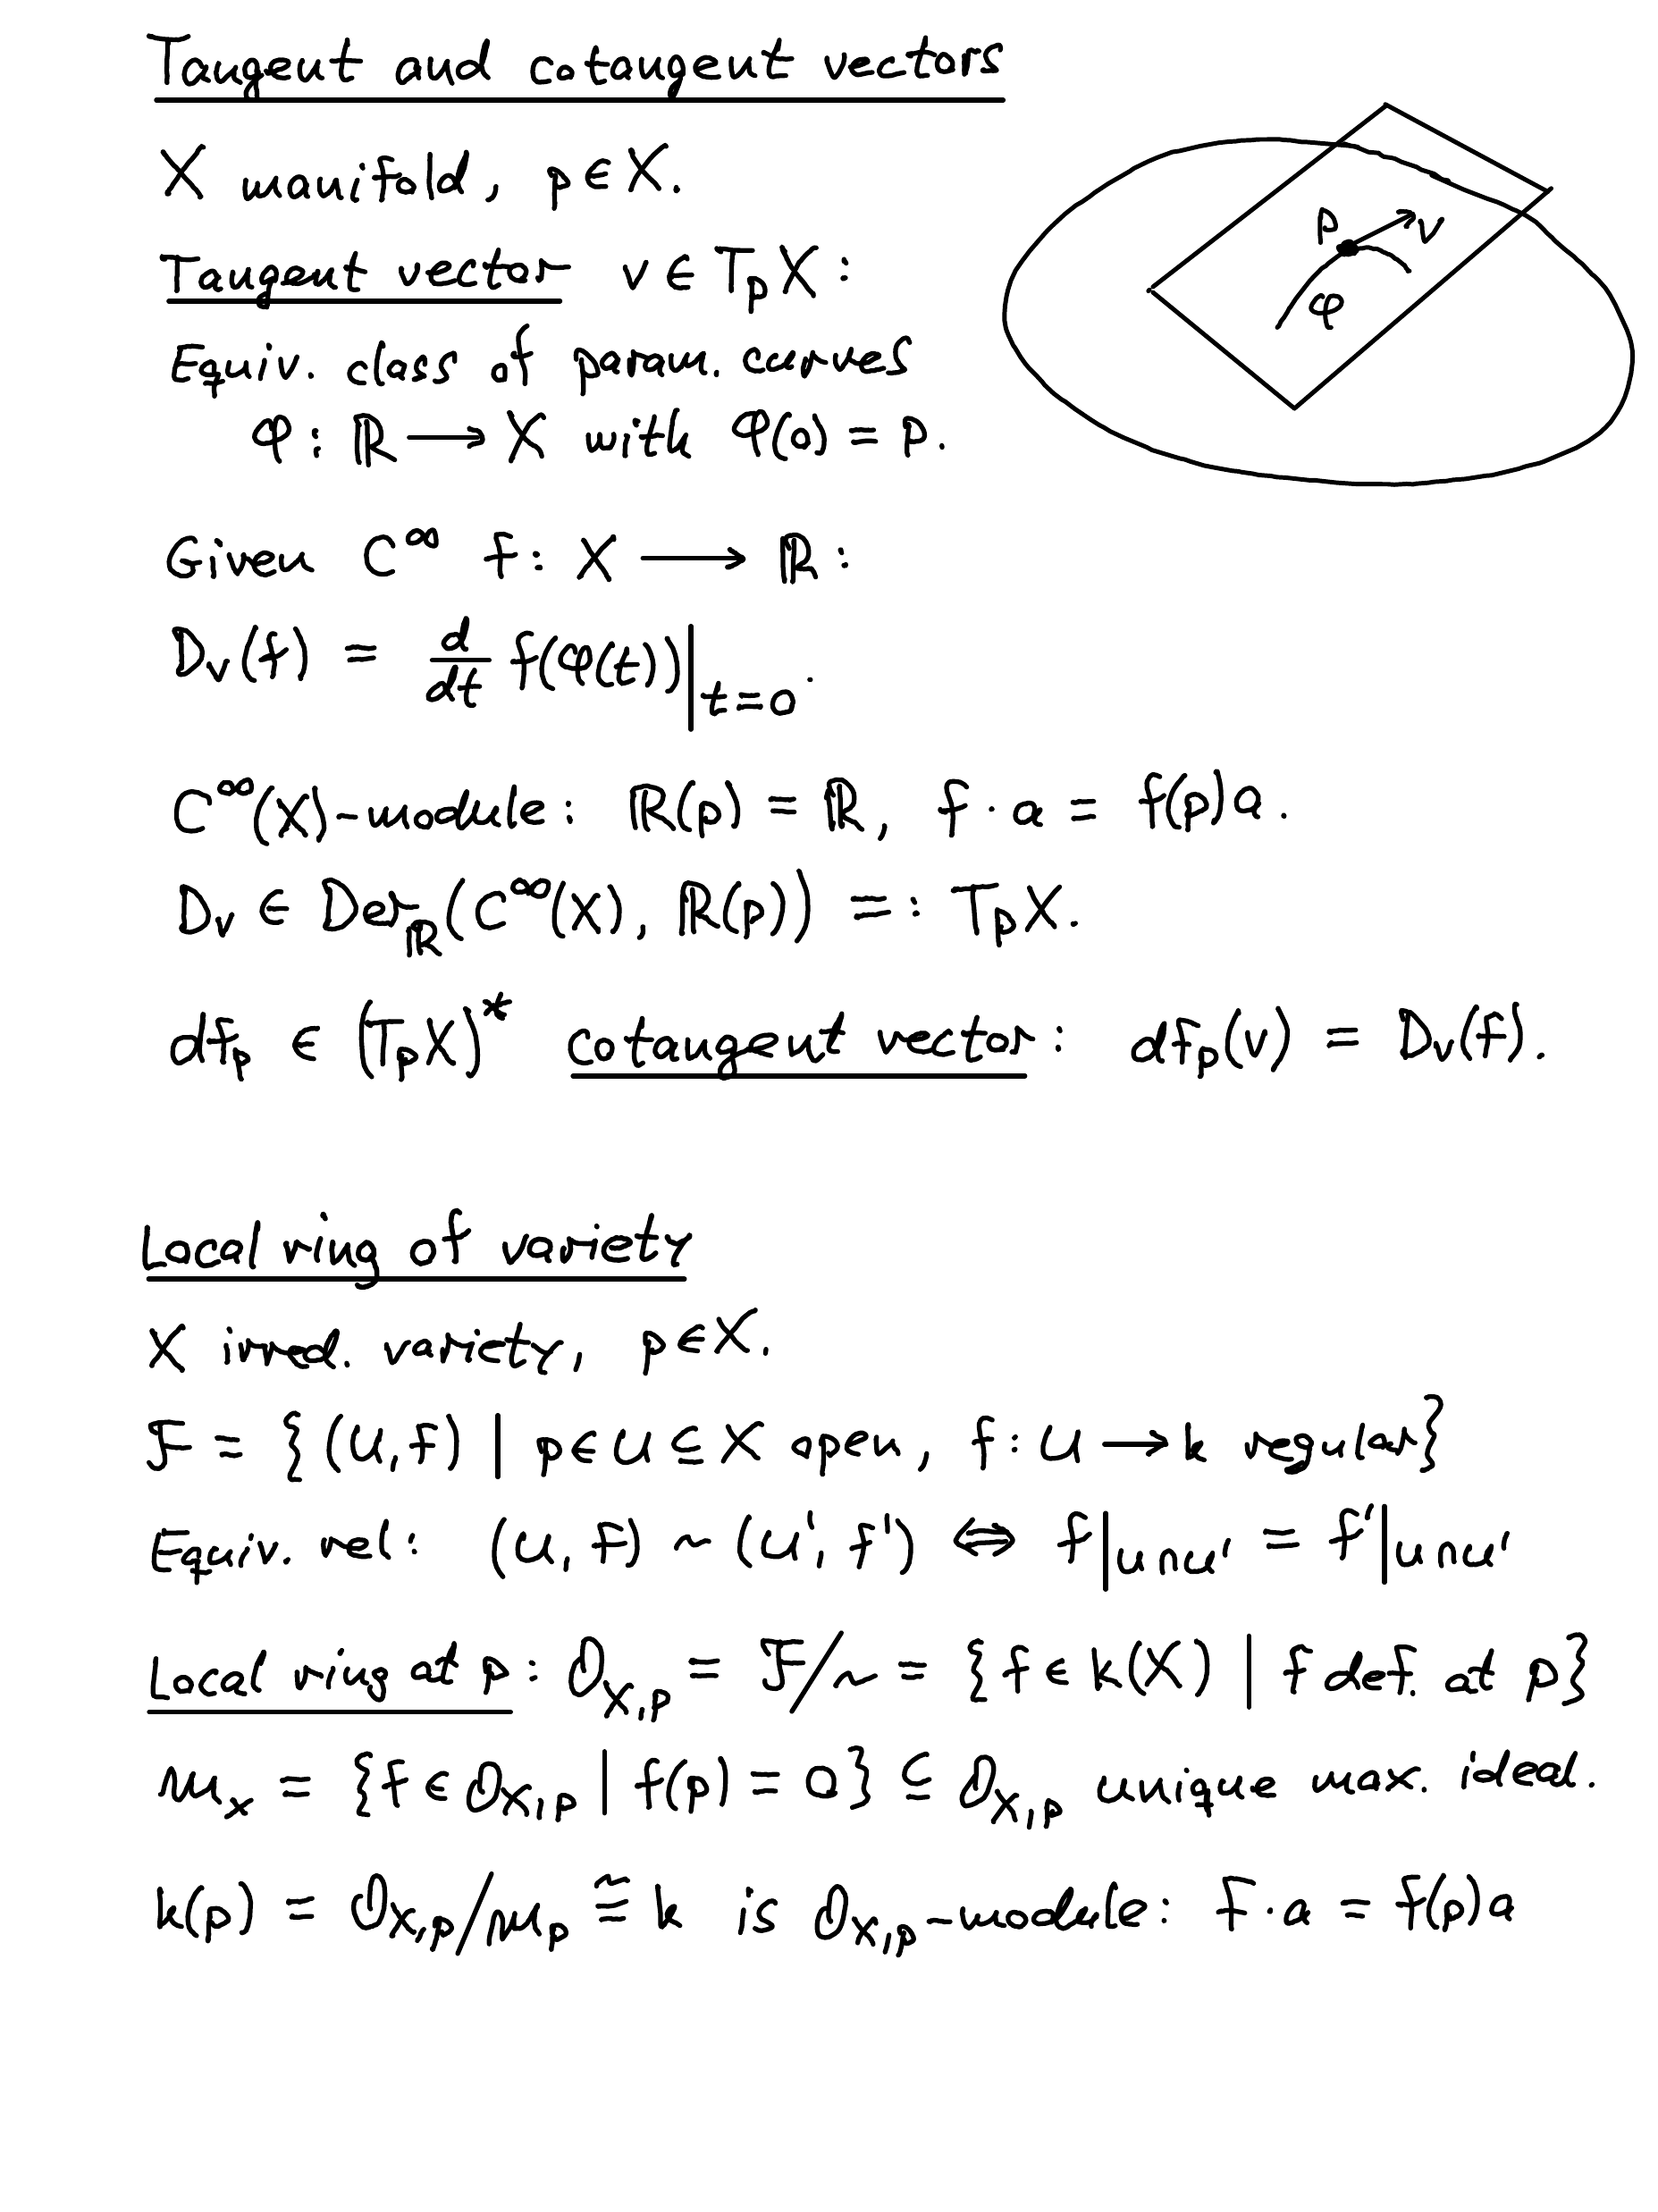 Tangent and cotangent vectors
X manifold, p∈X.
p v
φ
Tangent vector v ∈ TₚX :
Equiv. class of param. curves
φ : ℝ ⟶ X with φ(0) = p.
Given C^∞ f : X ⟶ ℝ :
D_v(f) = d/dt f(φ(t))|_{t=0}.
C^∞(X)-module : ℝ(p) = ℝ, f · a = f(p)a.
D_v ∈ Der_ℝ(C^∞(X), ℝ(p)) =: T_pX.
df_p ∈ (T_pX)^* cotangent vector : df_p(v) = D_v(f).
Local ring of variety
X irred. variety, p∈X.
ℱ = {(U,f) | p∈U⊆X open, f : U → k regular}
Equiv. rel : (U, f) ~ (U', f') ⇔ f|_{U∩U'} = f'|_{U∩U'}
Local ring at p : 𝒪_{X,p} = ℱ/~ = {f ∈ k(X) | f def. at p}
𝔪_x = {f ∈ 𝒪_{X,p} | f(p) = 0} ⊆ 𝒪_{X,p} unique max. ideal.
k(p) = 𝒪_{X,p}/𝔪_p ≅ k is 𝒪_{X,p}-module : f · a = f(p)a